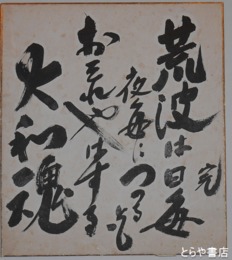 荒波は日毎
夜毎につのるとも
おそれやはする
大和魂
完
とらや書店